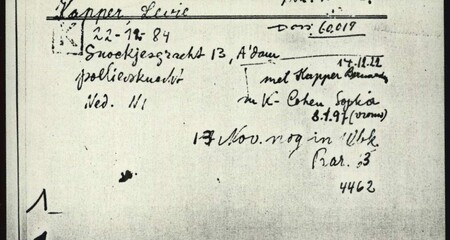 Kapper Levie
Doss 60.019
K
22-12-84
Snoekjesgracht 13, A'dam
14.12.22
met Kapper
Ned. NI
m K- Cohen Sophia
8.1.97 (vrouw)
17 Nov. nog in Wbk
Bar. 3
4462
1-
1